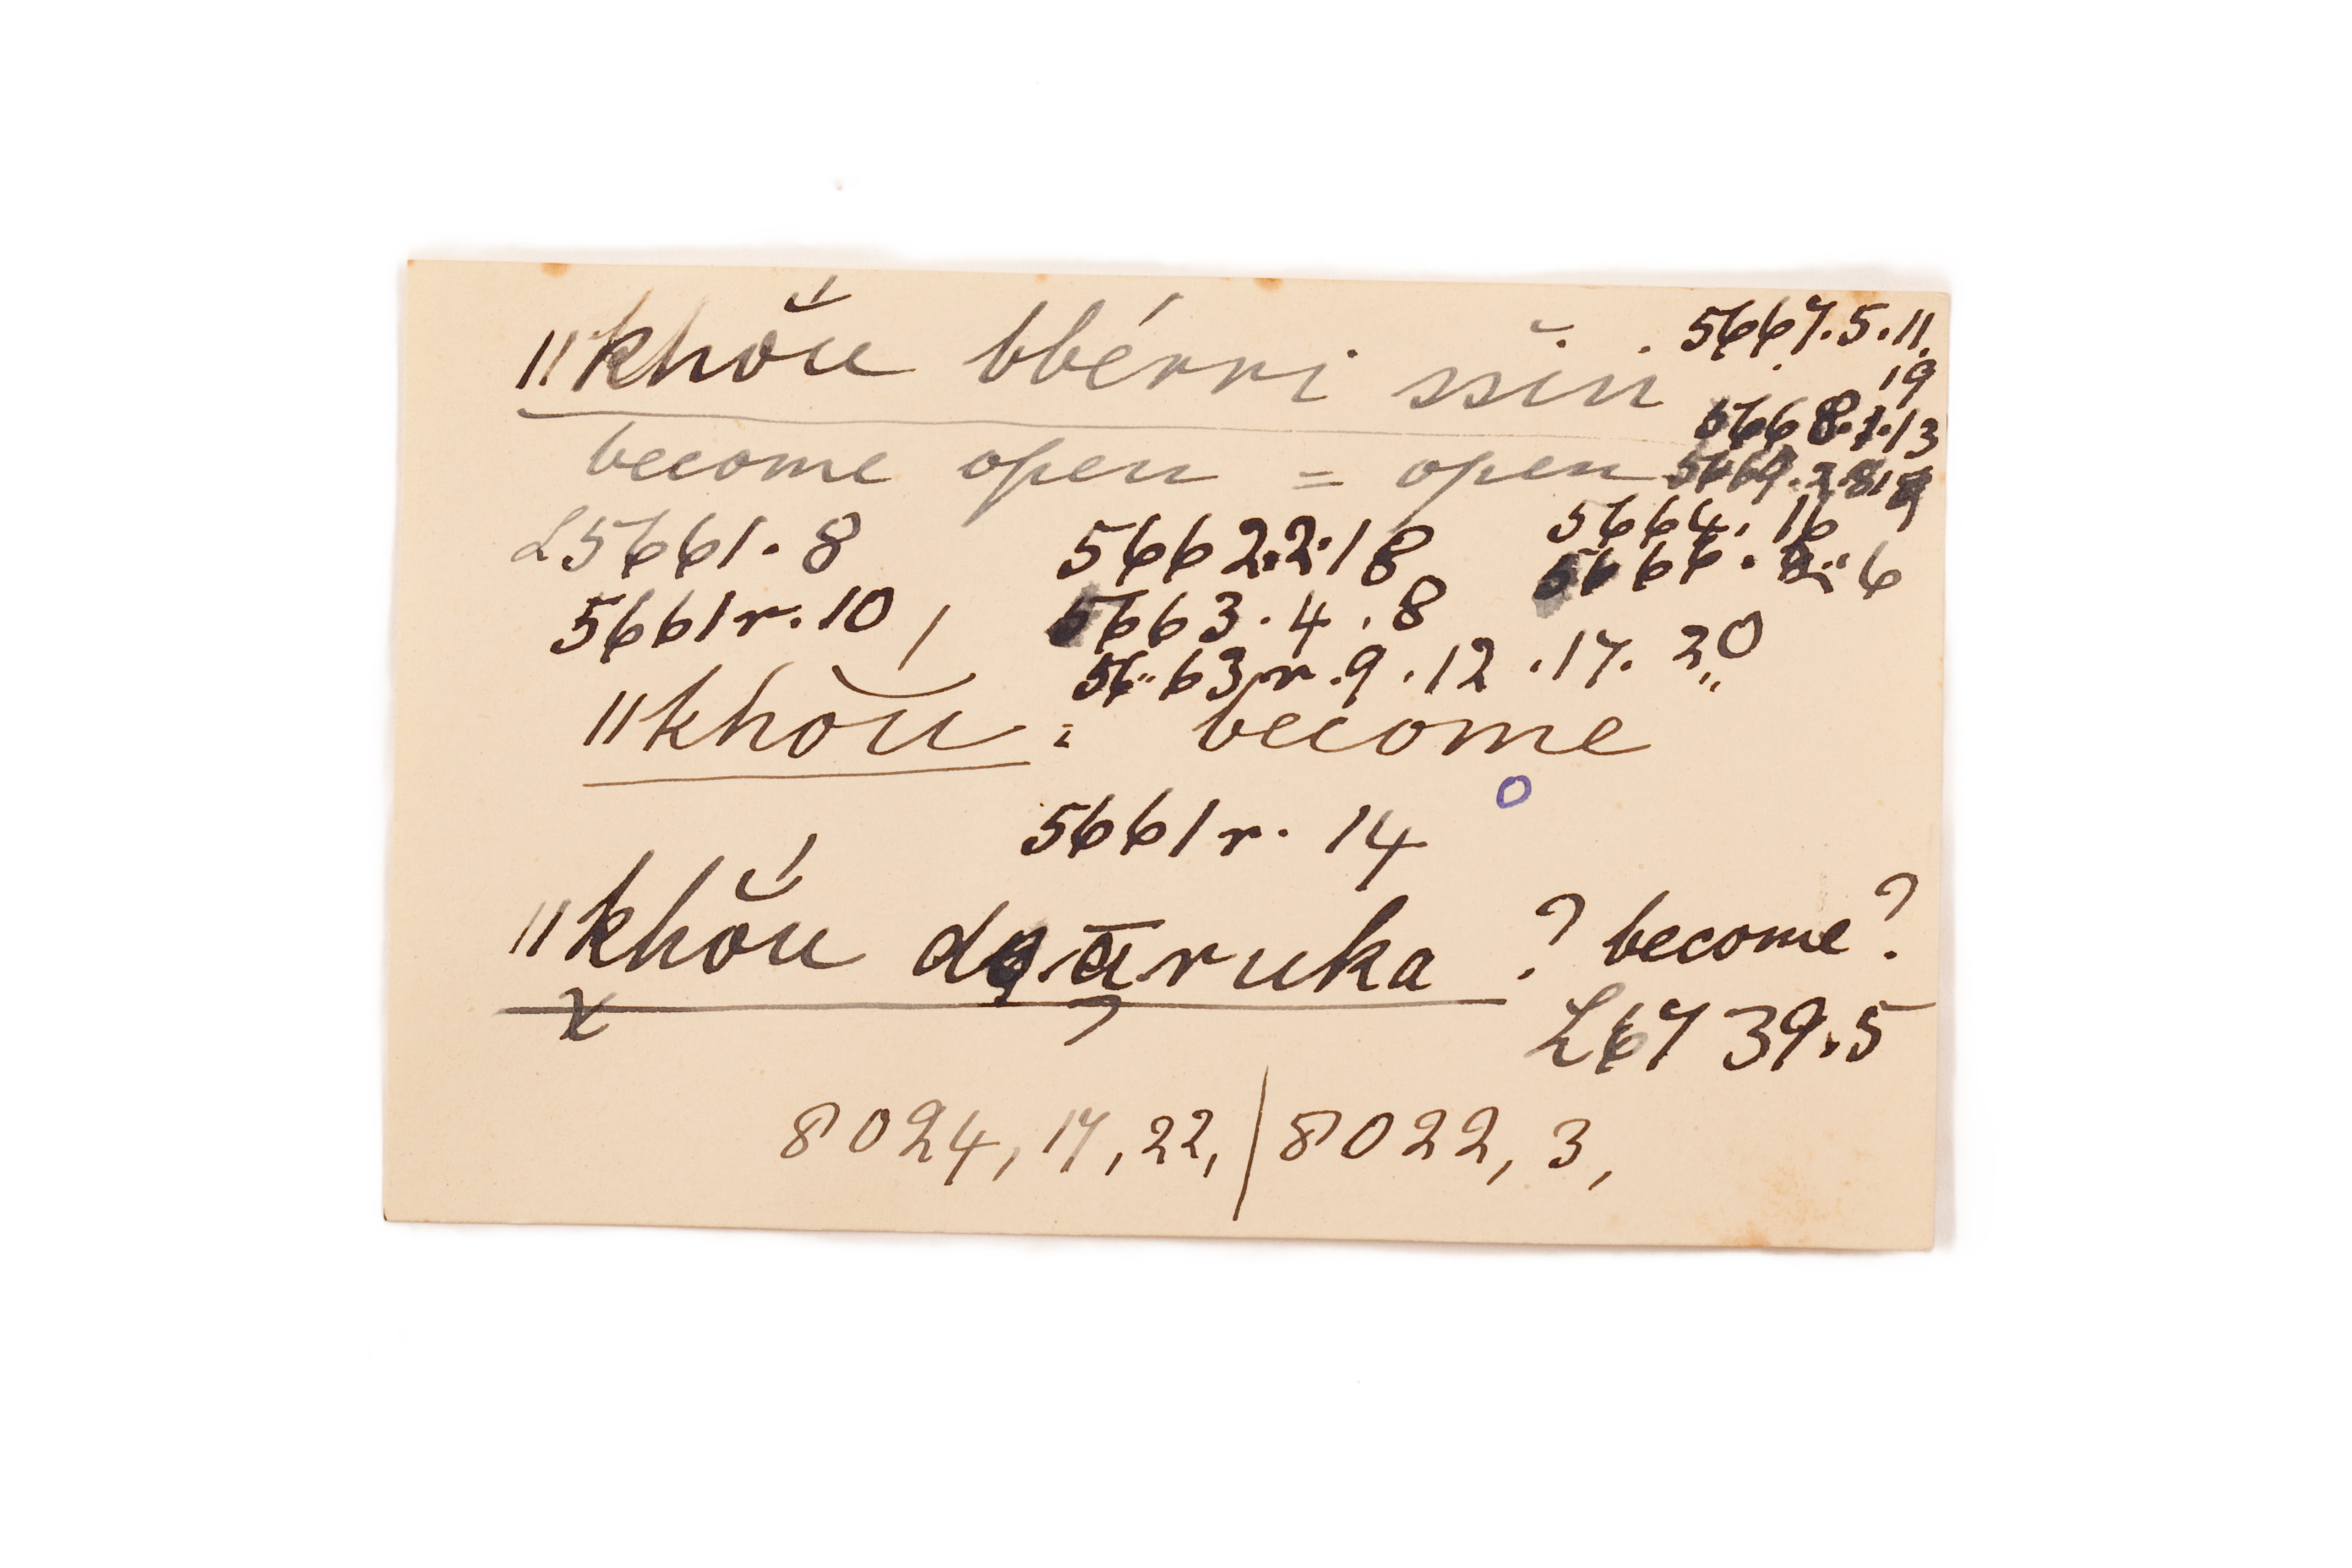 ǁkhṓ̆u bbérri sšin 5667.5.11.
19
become open = open 5668.7.13
L5661.8 5662.2.18 5664.16
5661r.10 5663.4.8 5666. 6
5663r.9.12.17.20
ǁkhṓ̆u = become
o
5661r. 14
ǁkhṓ̆u ruka ? become?
L6739.5
8024, 17, 22, | 8022, 3,